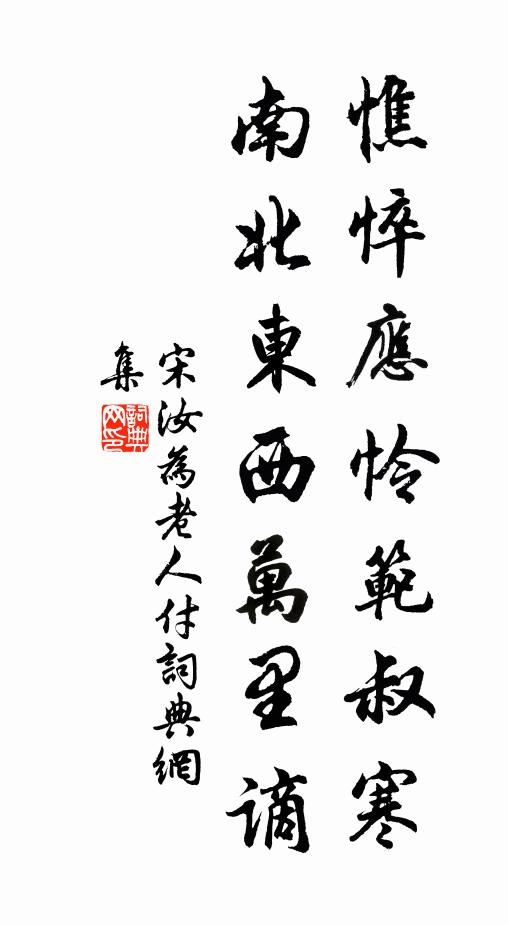 憔悴應怜範叔寒
南北東西萬里謫
宋汝為老人付詞典網
集
詞典网印